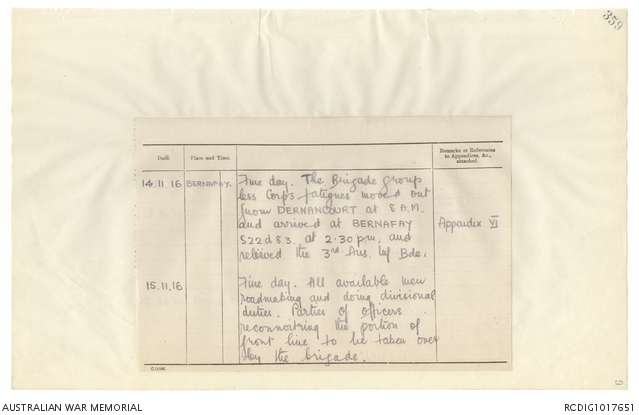 359
Date. Place and Time. Remarks or References to Appendices, &c., attached.
14.11.16 BERNAFAY. Fine day. The Brigade Group
less Corps fatigues moved out
from DERNANCOURT at 8 A.M.
and arrived at BERNAFAY Appendix VI
S22d 8.3. at 2.30 pm, and
relieved the 3rd Aus. Inf Bde.
15.11.16 Fine day. All available men
roadmaking and doing divisional
duties. Parties of officers
reconnoitring the portion of
front line to be taken over
by the brigade.
AUSTRALIAN WAR MEMORIAL RCDIG1017651